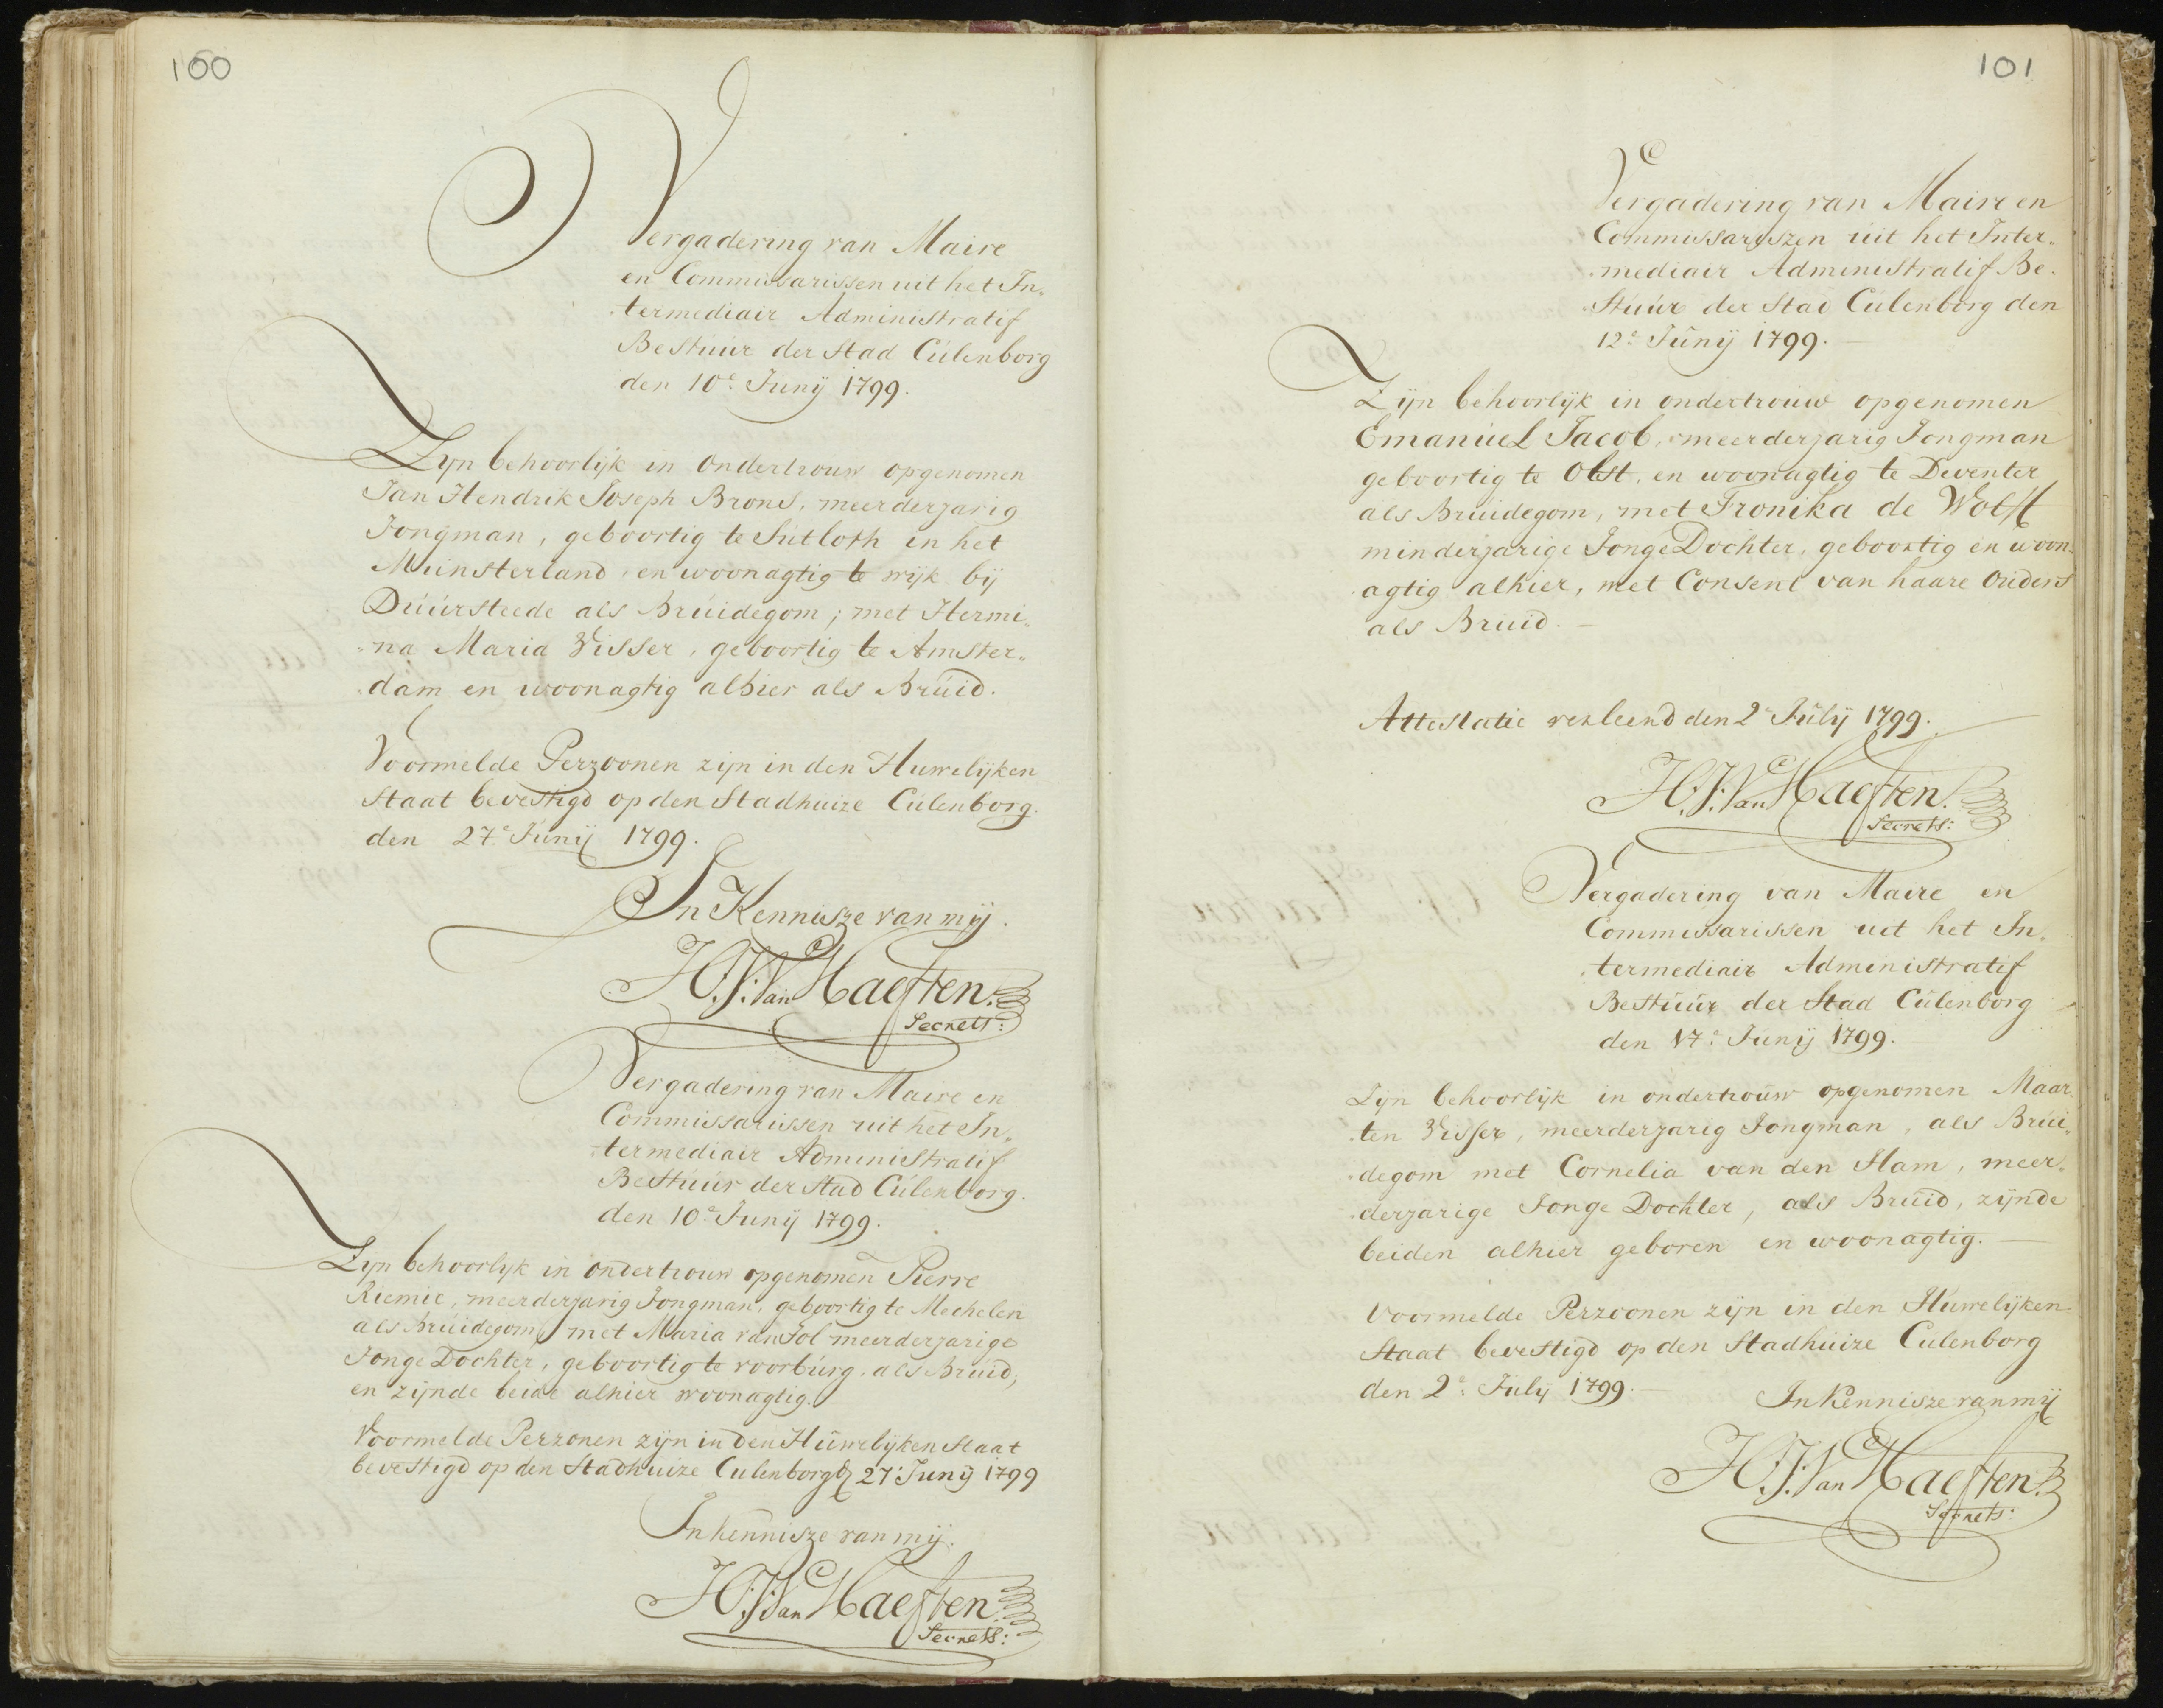 100
Vergadering van Maire
en Commissarissen uit het In„
„termediair Administratif
Bestuúr der Stad Cúlenborg
den 10e Junij 1799.
Zyn behoorlijk in Ondertrouw opgenomen
Jan Hendrik Joseph Brons, meerderjarig
Jongman, geboortig te Sútloth in het
Munsterland, en woonagtig te wijk bij
Dúúrsteede als Brúidegom; met Hermi„
„na Maria Visser, geboortig te Amster„
„dam en woonagtig alhier als Brúid.
Voormelde Perzoonen zijn in den Huwelijken
Staat bevestigd op den Stadhuize Cúlenborg.
den 27e Junij 1799.
In Kennisze van mij.
H.J. Van Haeften.
Secrets:
Vergadering van Maire en
Commissarissen uit het In„
„termediair Administratif
Bestúúr der Stad Cúlenborg.
den 10e Junij 1799.
Zijn behoorlyk in ondertrouw opgenomen Pierre
Riemie, meerderjarig Jongman, geboortig te Mechelen
als Brúidegom, met Maria van Tol meerderjarige
Jonge Dochter, geboortig te voorbúrg, als Brúid,
en zijnde beide alhier woonagtig.
Voormelde Perzonen zijn in den Húwelijken Staat
bevestigd op den Stadhuize Culenborg 27e Junij 1799
In kennisze van mij.
H.J. Van Haeften.
Secrets:
101
Vergadering van Maire en
Commissariszen úit het Inter„
„mediair Administratif Be„
„Stúúr der Stad Cúlenborg den
12e Junij 1799.
Zijn behoorlijk in ondertrouw opgenomen
Emanúel Jacob, meerderjarig Jongman
geboortig te Olst, en woonagtig te Deventer
als Brúidegom, met Fronika de Wolff
minderjarige Jonge Dochter, geboortig en woon„
„agtig alhier, met Consent van haare Oúders
als Brúid.
Attestatie verleend den 2e Júlij 1799.
H.J. Van Haeften.
Secrets:
Vergadering van Maire en
Commissarissen uit het In„
„termediair Administratif
Bestúúr der Stad Cúlenborg
den 17e Junij 1799.
Zijn behoorlijk in ondertrouw opgenomen Maar„
„ten Visser, meerderjarig Jongman, als Brúi„
„degom met Cornelia van den Ham, meer„
„derjarige Jonge Dochter, als Brúid, zijnde
beiden alhier geboren en woonagtig.
Voormelde Perzoonen zijn in den Húwelijken
Staat bevestigd op den Stadhúize Culenborg
den 2e Julij 1799.
In Kennisze van mij
H.J. Van Haeften.
Secrets: